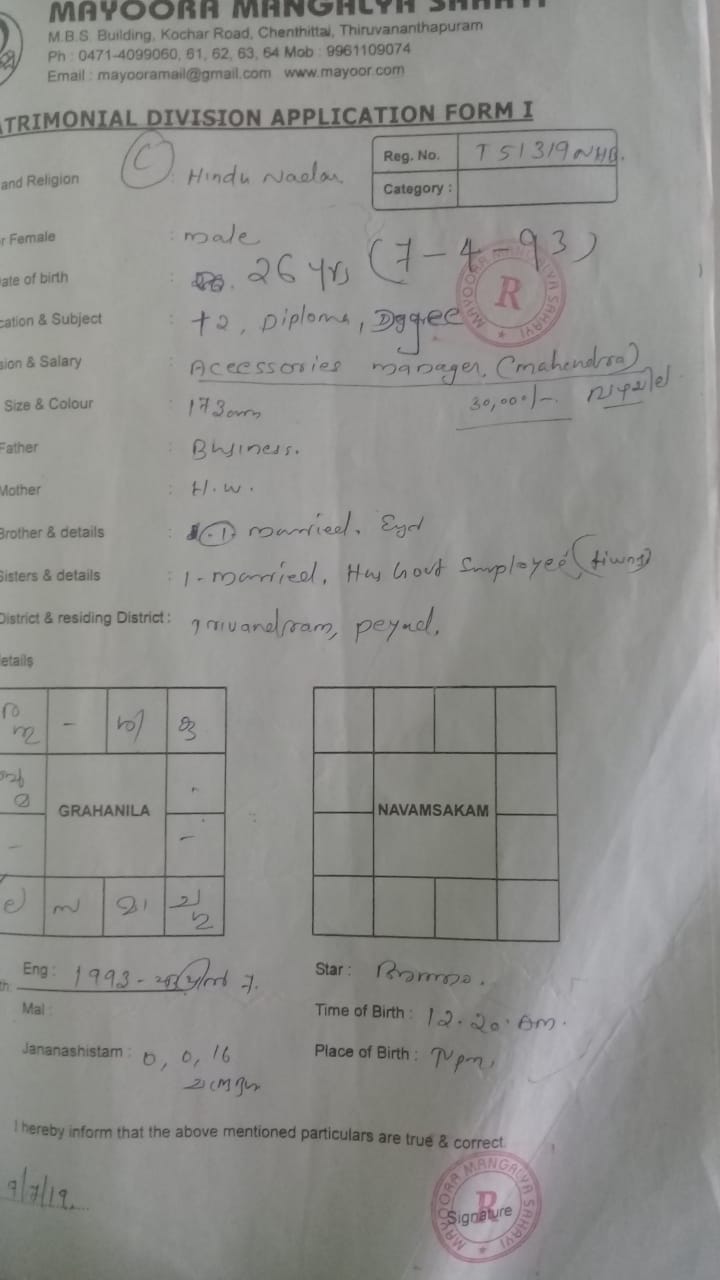 MAYOORA MANGALYA SAHAYI
M.B.S. Building, Kochar Road, Chenthittai, Thiruvananthapuram
Ph : 0471-4099060, 61, 62, 63, 64 Mob : 9961109074
Email : mayooramail@gmail.com www.mayoor.com
TRIMONIAL DIVISION APPLICATION FORM I
Reg. No. T 51319
Category :
and Religion : Hindu
r Female : male
ate of birth : 26 yrs (7-4-93)
cation & Subject : +2, Diploma, Dggree
sion & Salary : Acessories manager, (mahendra)
Size & Colour : 173 cm 30,000/-
Father : Business.
Mother : H.W.
Brother & details : 1 married.
Sisters & details : 1-married, Hus Govt Employee
District & residing District : peyad.
etails
-
GRAHANILA
-
-
NAVAMSAKAM
Eng : 1993 - ഏപ്രിൽ 7.
th
Mal :
Jananashistam : 0, 0, 16
Star :
Time of Birth : 12.20 Am.
Place of Birth : Tvpm,
I hereby inform that the above mentioned particulars are true & correct.
9/7/19
Signature
MAYOORA MANGALYA SAHAYI
R
MAYOORA MANGALYA SAHAYI
R